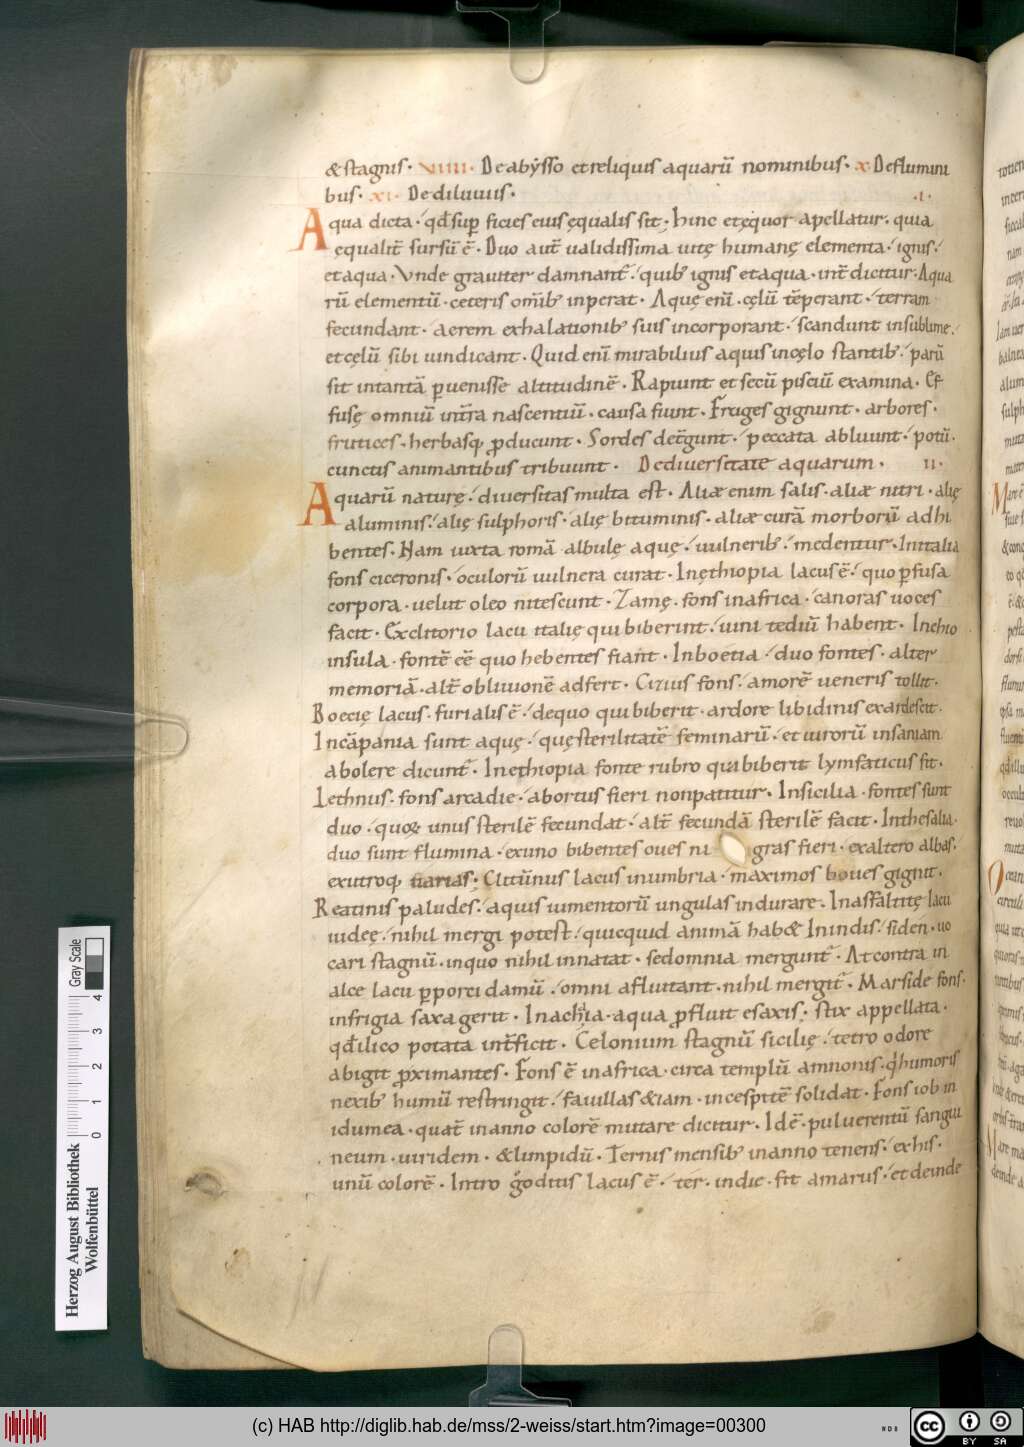 &stagnis· VIIII· De abẏsso et reliquis aquarū nominibus· X· De flumini
bus· XI· De diluuiis· ·I·
Aqua dicta· qđ sup̱ficies eius ęqualis sit; hinc et ęquor apellatur· quia
ęqualit̄ sursū ē· Duo aut̄ ualidissima uitę humanę elementa· ignis·
et aqua· Vnde grauiter damnant̄· quib; ignis et aqua· int̄dicitur· Aqua
rū elementū· ceteris om̄ib; inperat· Aquę enī· cęlū tēperant· terram
fecundant· aerem exhalationib; suis incorporant· scandunt in sublime·
et cęlū sibi uindicant· Quid enī mirabilius aquis in cęlo stantib;· parū
sit in tantā ꝑuenisse altitudinē· Rapiunt et secū pisciū examina· Ef
fusę omniū int̄ra nascentiū· causa fiunt· Fruges gignunt· arbores·
frutices· herbasq; ꝓducunt· Sordes det̄gunt· peccata abluunt· potū·
cunctis animantibus tribuunt· De diuersitate aquarum· II·
Aquarū naturę· diuersitas multa est· Aliæ enim salis· aliæ nitri· alię
aluminis· alię sulphoris· alię bituminis· aliæ curā morborū adhi
bentes· Nam iuxta romā albulę aquę· uulnerib; medentur· In italia
fons ciceronis· oculorū uulnera curat· In ęthiopia lacus ē· quo ꝑfusa
corpora· uelut oleo nitescunt· Zamę· fons in africa· canoras uoces
facit· Ex clitorio lacu italię qui biberint· uini tediū habent· In chio
insula· fontē eē quo hebentes fiant· In boetia· duo fontes· alter
memoriā· alt̄ obliuionē adfert· Cizius fons· amorē ueneris tollit·
Boecię lacus· furialis ē· de quo qui biberit· ardore libidinis exardescit·
In cāpania sunt aquę· quę sterilitatē feminarū· et uirorū insaniam
abolere dicunt̄· In ethiopia fonte rubro qui biberit lymfaticus fit·
Lethnus· fons arcadie· abortus fieri non patitur· In sicilia· fontes sunt
duo· quoꝝ unus sterilē fecundat· alt̄ fecundā sterilē facit· In thesalia·
duo sunt flumina· ex uno bibentes oues ni gras fieri· ex altero albas·
ex utroq; uarias; Clitūnus lacus in umbria· maximos boues gignit·
Reatinis paludes· aquis iumentorū ungulas indurare· In asfaltitę lacu
iudeę· nihil mergi potest· quicquid animā hab& In indis· siden· uo
cari stagnū· in quo nihil innatat· sed omnia mergunt̄· At contra in
alce lacu ꝑporci damū· omni afluitant· nihil mergit̄· Marside fons·
in frigia saxa gerit· In achaia· aqua ꝓfluit e saxis· stix appellata·
qđ ilico potata int̄ficit· Celonium stagnū sicilię· tetro odore
abigit ꝓximantes· Fons ē in africa· circa templū amnonis· q̇ humoris
nexib; humū restringit· fauillas &iam· in cespitē solidat· Fons iob in
idumea· quat̄ in anno colorē mutare dicitur· Id ē· puluerentū sangui
neum· uiridem· & limpidū· Ternis mensib; in anno tenens· ex his·
unū colorē· In trogoditis lacus ē· ter· in die· fit amarus· et deinde
Herzog August Bibliothek
Wolfenbüttel
0 1 2 3 4
Gray Scale
(c) HAB http://diglib.hab.de/mss/2-weiss/start.htm?image=00300
cc BY SA